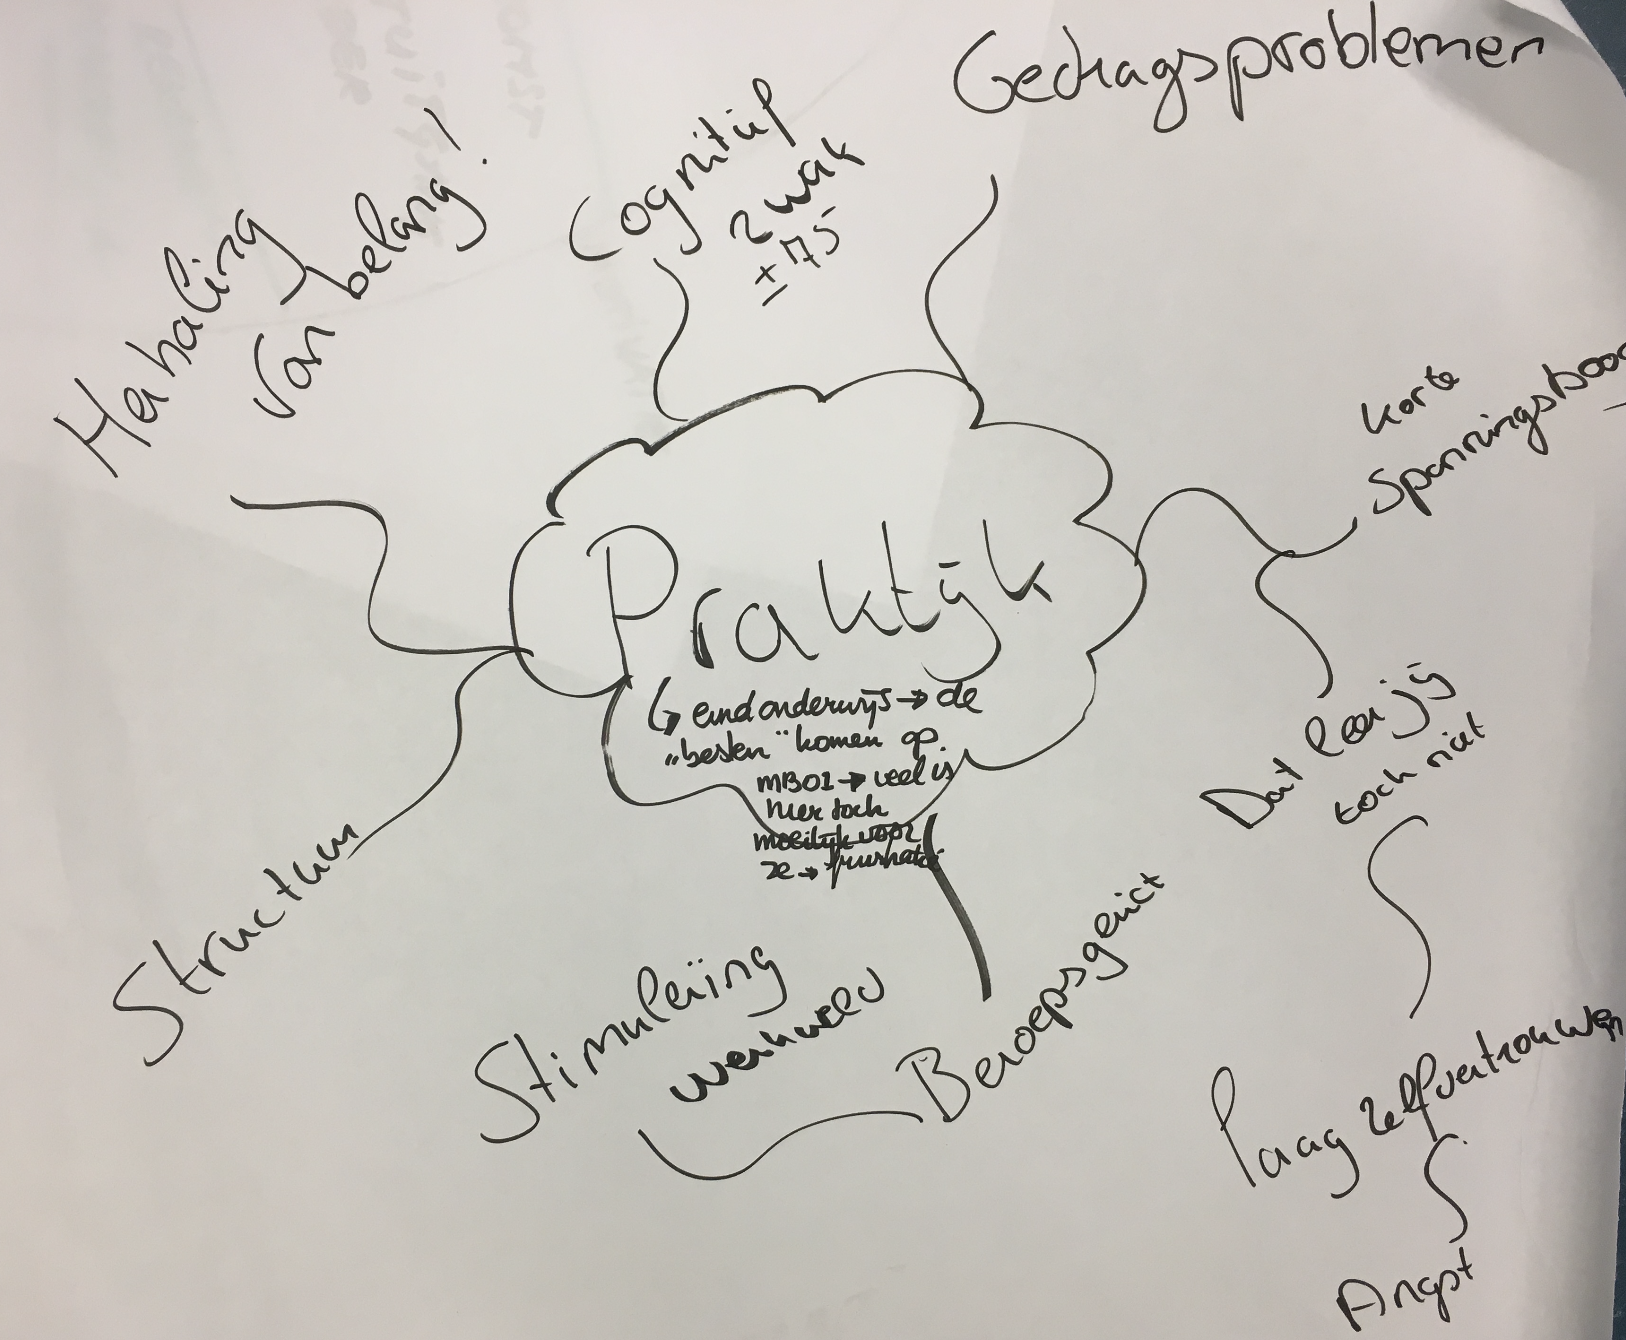 Gedragsproblemen
Cognitief
zwak
± 75
Herhaling
van belang!
korte
spanningsboo
Praktijk
↳ eindonderwijs → de
„besten" komen op
MBO1 → veel is
hier toch
moeilijk voor
ze → frustratie
Dat leer jij
toch niet
Structuur
Stimulering
Beroepsgericht
laag zelfvertrouwen
Angst